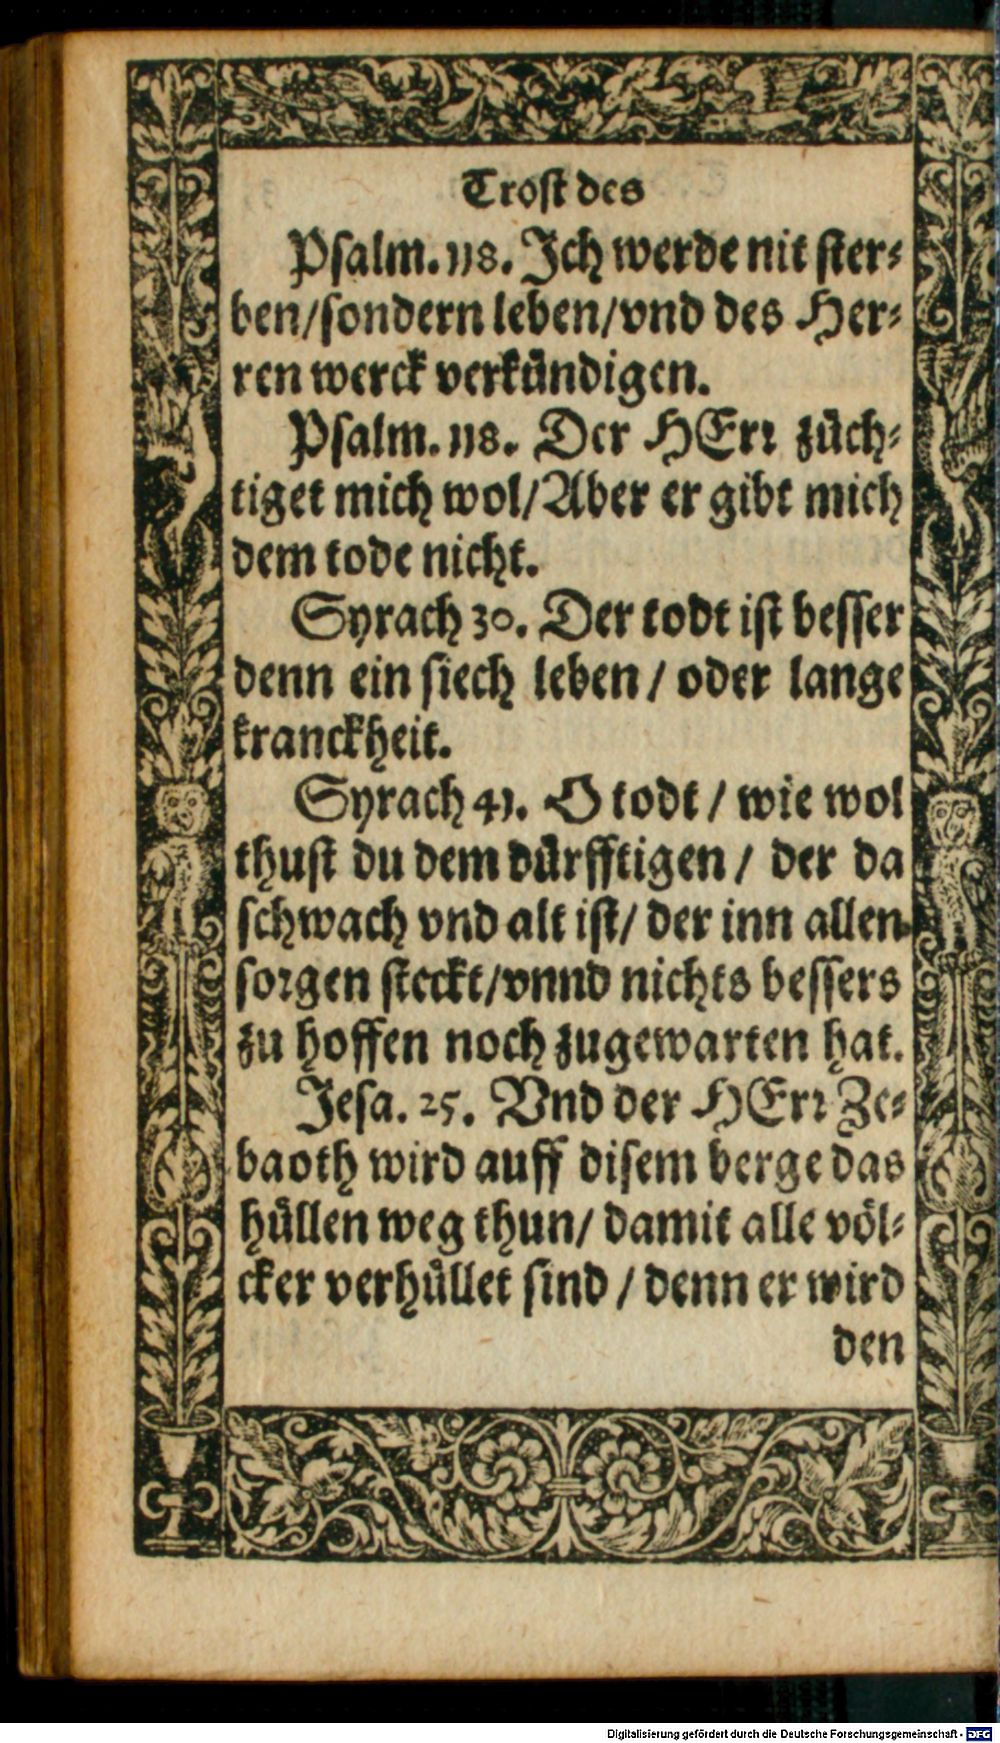 Trost des
Psalm. 118. Ich werde nit ster⸗
ben/sondern leben/vnd des Her⸗
ren werck verkündigen.
Psalm. 118. Der HErr züch⸗
tiget mich wol/Aber er gibt mich
dem tode nicht.
Syrach 30. Der todt ist besser
denn ein siech leben / oder lange
kranckheit.
Syrach 41. O todt / wie wol
thust du dem dürfftigen / der da
schwach vnd alt ist/ der inn allen
sorgen steckt/vnnd nichts bessers
zu hoffen noch zugewarten hat.
Jesa. 25. Vnd der HErr Ze⸗
baoth wird auff disem berge das
hüllen weg thun/ damit alle völ⸗
cker verhüllet sind / denn er wird
den
Digitalisierung gefördert durch die Deutsche Forschungsgemeinschaft - DFG